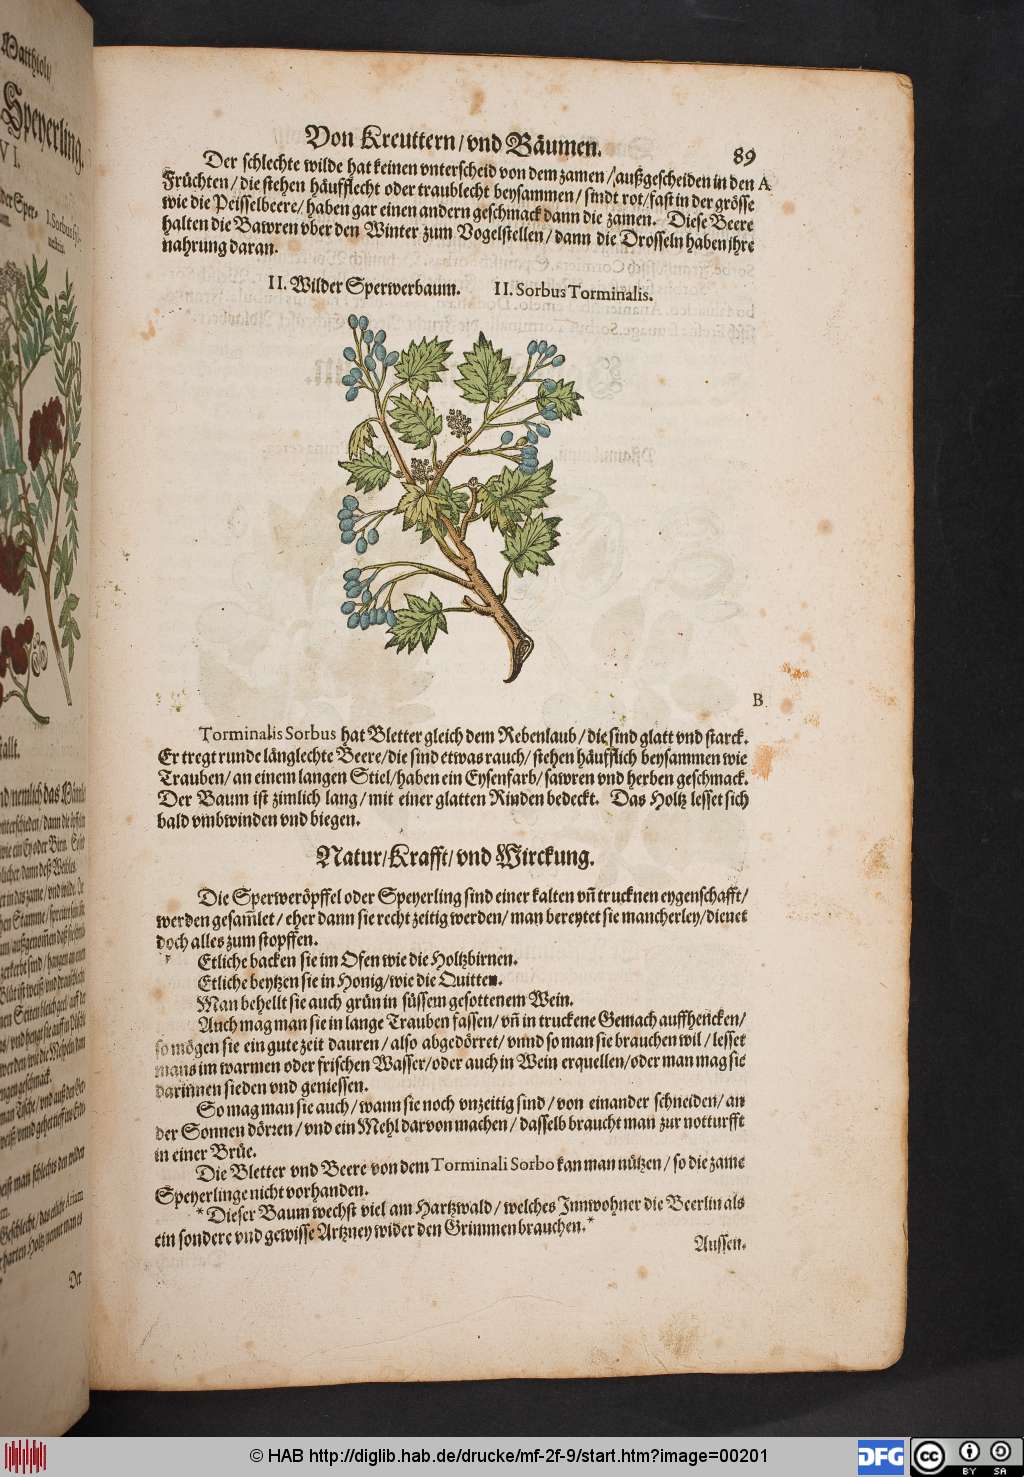 Matthioli
Speyerling.
VI.
Von Kreuttern/ vnd Bäumen.
89
Der schlechte wilde hat keinen vnterscheid von dem zamen / außgescheiden in den A
Früchten / die stehen häufflecht oder traublecht beysammen / sindt rot/ fast in der grösse
wie die Peisselbeere/ haben gar einen andern geschmack dann die zamen. Diese Beere
halten die Bawren vber den Winter zum Vogelstellen / dann die Drosseln haben ihre
nahrung daran.
II. Wilder Sperwerbaum. II. Sorbus Torminalis.
B
Torminalis Sorbus hat Bletter gleich dem Rebenlaub / die sind glatt vnd starck.
Er tregt runde länglechte Beere/ die sind etwas rauch/ stehen häufflich beysammen wie
Trauben/ an einem langen Stiel/ haben ein Eysenfarb/ sawren vnd herben geschmack.
Der Baum ist zimlich lang / mit einer glatten Rinden bedeckt. Das Holtz lesset sich
bald vmbwinden vnd biegen.
Natur/ Krafft/ vnd Wirckung.
Die Sperweröpffel oder Speyerling sind einer kalten vñ trucknen eygenschafft/
werden gesam̃let / eher dann sie recht zeitig werden / man bereytet sie mancherley/ dienet
doch alles zum stopffen.
Etliche backen sie im Ofen wie die Holtzbirnen.
Etliche beytzen sie in Honig/ wie die Quitten.
Man behellt sie auch grün in süssem gesottenem Wein.
Auch mag man sie in lange Trauben fassen/ vñ in truckene Gemach auffhencken/
so mögen sie ein gute zeit dauren / also abgedörret/ vnnd so man sie brauchen wil / lesset
mans im warmen oder frischen Wasser/ oder auch in Wein erquellen/ oder man mag sie
darinnen sieden vnd geniessen.
So mag man sie auch / wann sie noch vnzeitig sind / von einander schneiden/ an
der Sonnen dörren / vnd ein Mehl darvon machen / dasselb braucht man zur notturfft
in einer Brüe.
Die Bletter vnd Beere von dem Torminali Sorbo kan man nützen / so die zame
Speyerlinge nicht vorhanden.
* Dieser Baum wechst viel am Hartzwald / welches Innwohner die Beerlin als
ein sondere vnd gewisse Artzney wider den Grimmen brauchen.*
Aussen.
Der
© HAB http://diglib.hab.de/drucke/mf-2f-9/start.htm?image=00201
DFG
cc BY SA